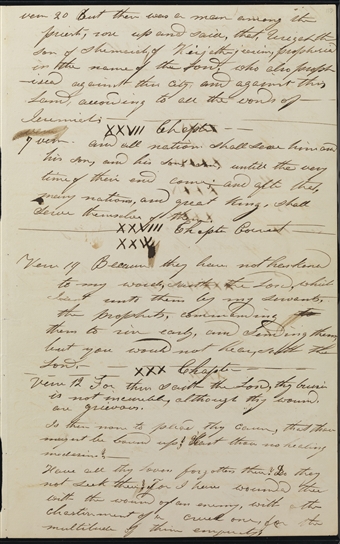 ver. 20 But there was a man among the
priests, rose up and said, that Urijah the
Son of Shemaiah of Kirjath-jearim, prophesied
in the name of the Lord, who also proph-
isied against this city and against this
Land, according to all the words of
Jeremiah:
XXVII Chapter
7 verse. and all nations shall serve him and
his son, and his son's son, untill the very
time of their end come; and after that,
many nations, and great kings, shall
Serve themselves of
XXVIII Chapter Correct
XXIX
Verse 19 Because they have not hearkened
to my words, saith the Lord, which
I sent unto them by my servants
the prophets, commanding
them to rise early, and Sending them,
but you would not hear, saith the
Lord.
XXX Chapter
Verse 12 For thus saith the Lord, thy bruise
is not incurable, although thy wounds
are grievous.
Is there none to plead thy cause, that thou
mayest be bound up? Hast thou no healing
medicine?
Have all thy lovers forgotten thee? Do they
not seek thee? for I have wounded thee
with the wound of an enemy, with the
chastisement of a cruel one, for the
multitude of thine